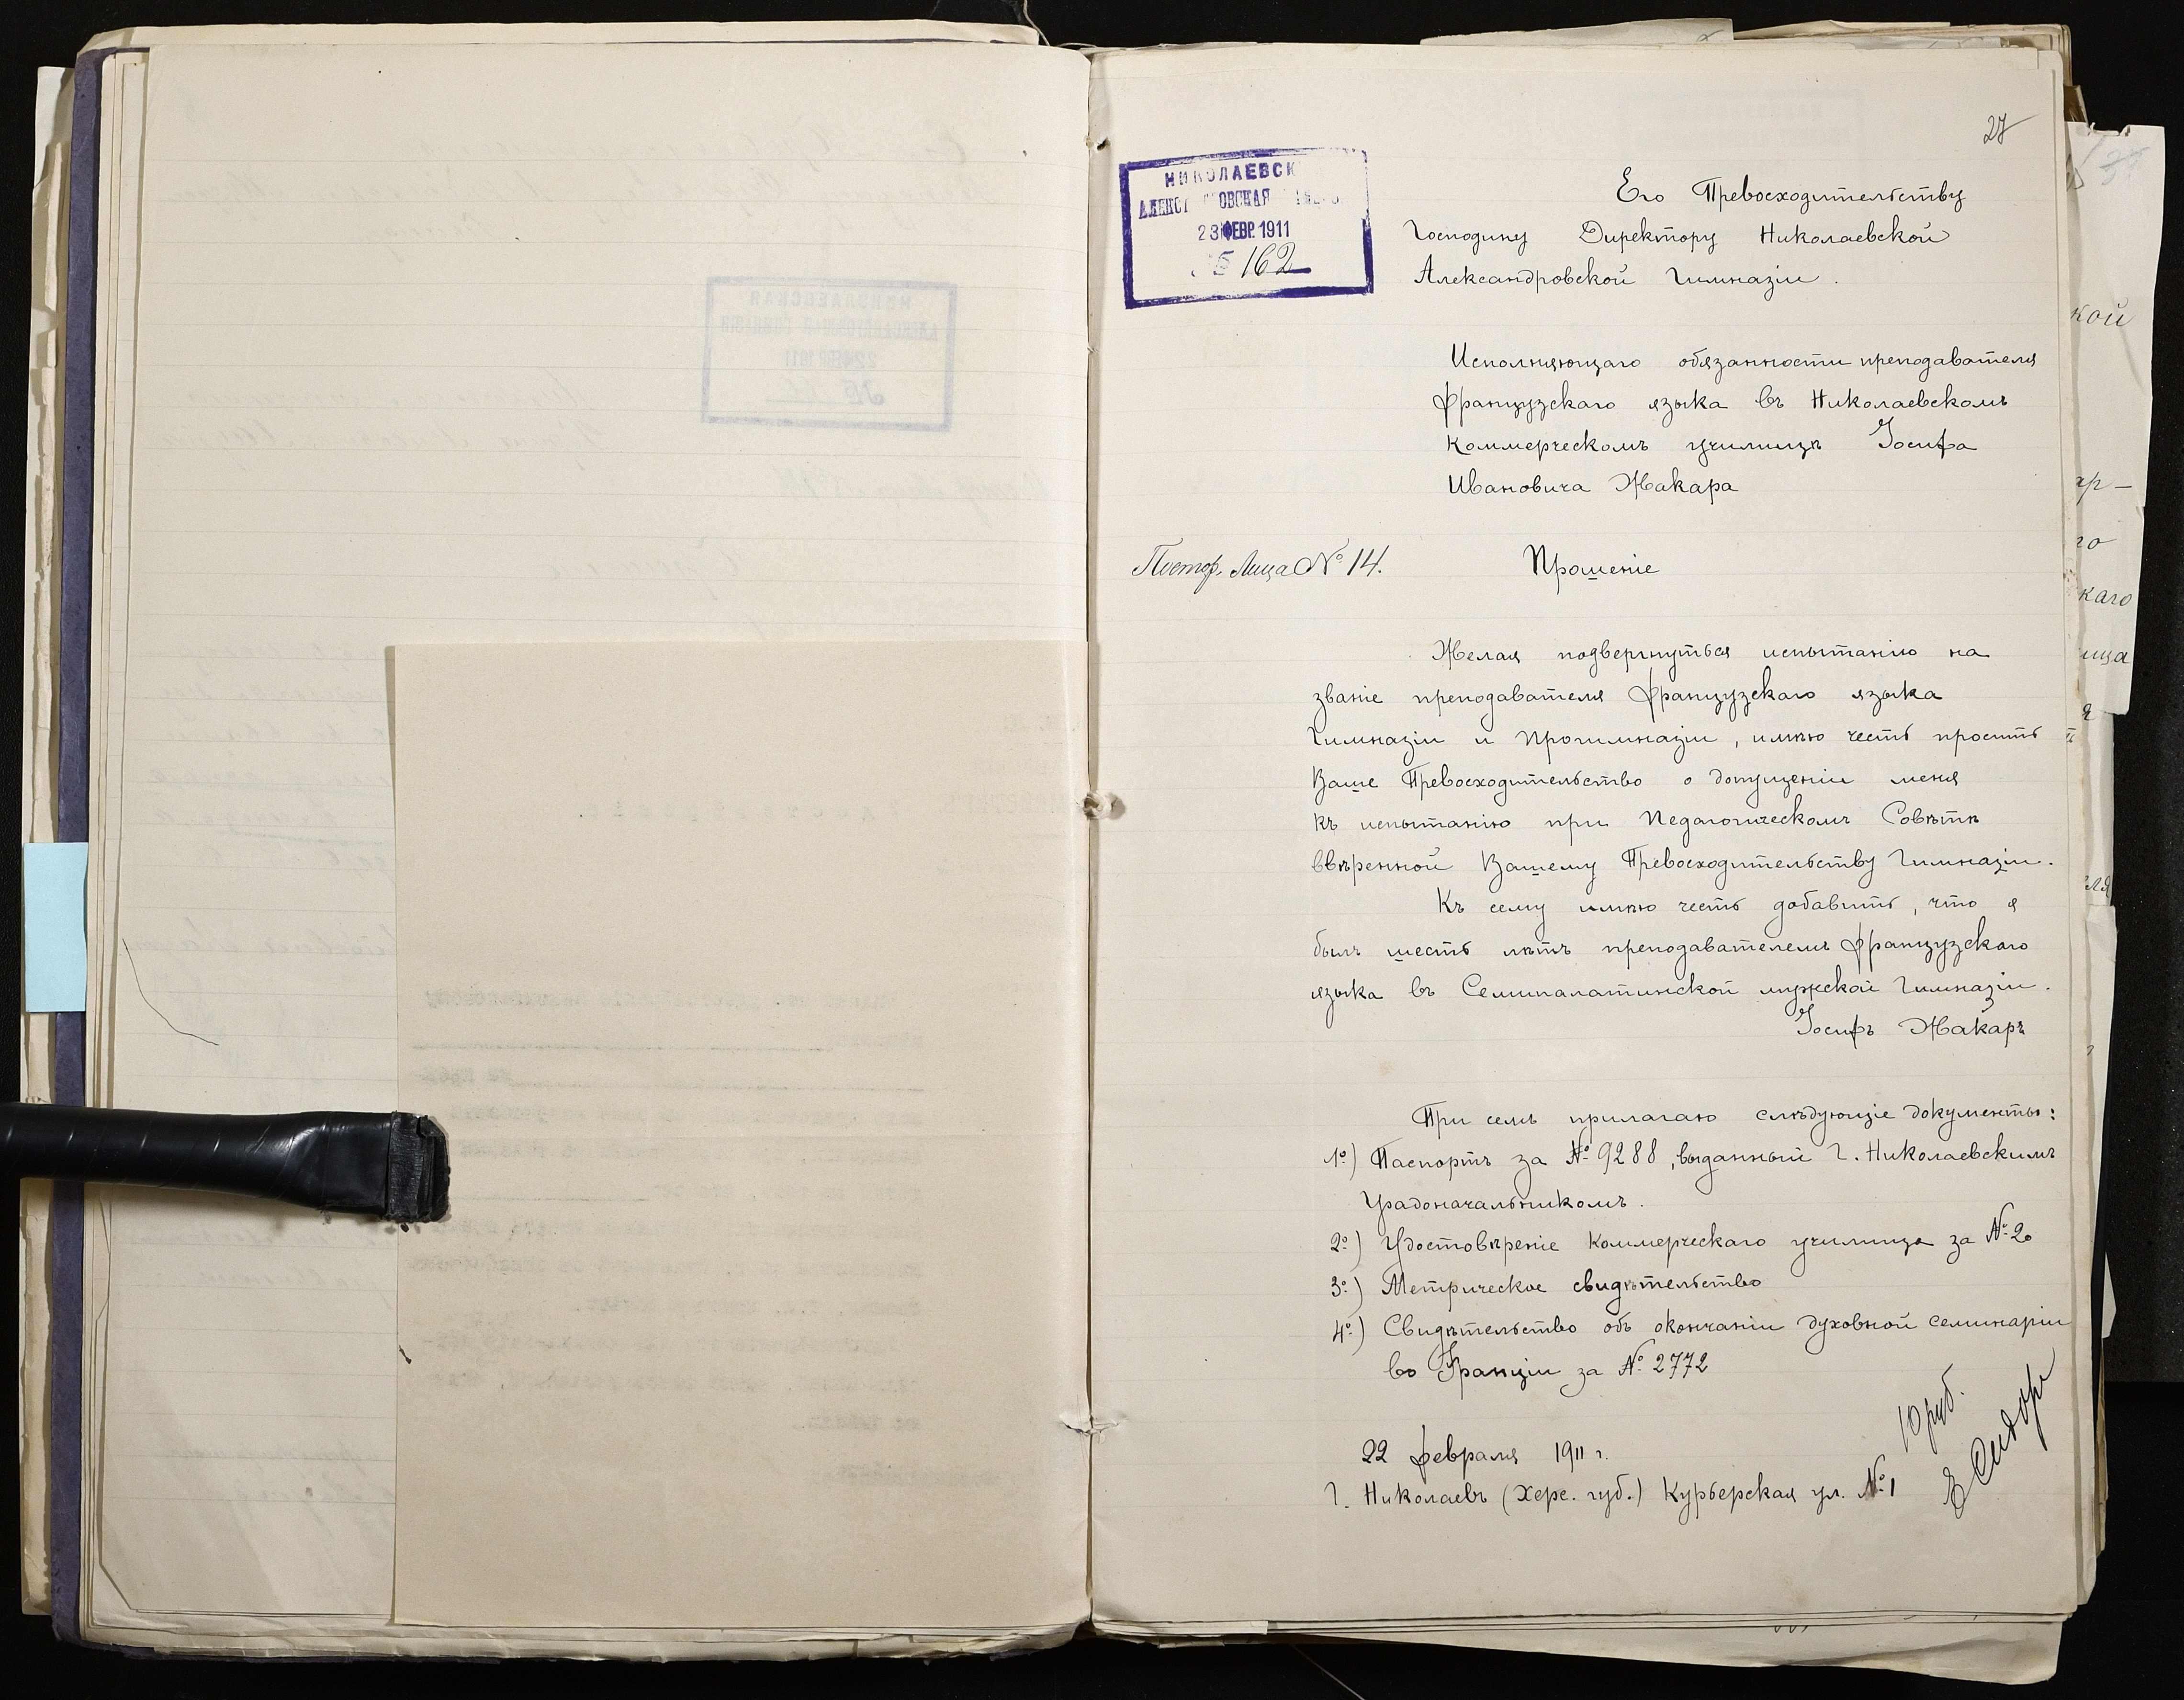 27
НИКОЛАЕВСК
23 ФЕВР. 1911
162
Его Превосходительству
Господину Директору Николаевской
Александровской Гимназіи.
Исполняющаго обязанности преподавателя
французскаго языка въ Николаевскомъ
Коммерческомъ училищѣ Іосифа
Ивановича Жакара
Постор. Лица № 14.
Прошеніе
Желая подвергнуться испытанію на
званіе преподавателя французскаго языка
Гимназіи и Прогимназіи, имѣю честь просить
Ваше Превосходительство о допущеніи меня
къ испытанію при Педагогическомъ Совѣтѣ
ввѣренной Вашему Превосходительству Гимназіи.
Къ сему имѣю честь добавить, что я
былъ шесть лѣтъ преподавателемъ французскаго
языка въ Семипалатинской мужской Гимназіи.
Іосифъ Жакаръ
При семъ прилагаю слѣдующіе документы:
1º) Паспортъ за № 9288, выданный Г. Николаевскимъ
Градоначальникомъ.
2º) Удостовѣреніе Коммерческаго училища за № 20
3º) Метрическое свидѣтельство
4º) Свидѣтельство объ окончаніи духовной семинаріи
во Франціи за № 2772
10 руб.
22 февраля 1911 г.
Г. Николаевъ (Херс. губ.) Курьерская ул. № 1
кой
го
каго
ица